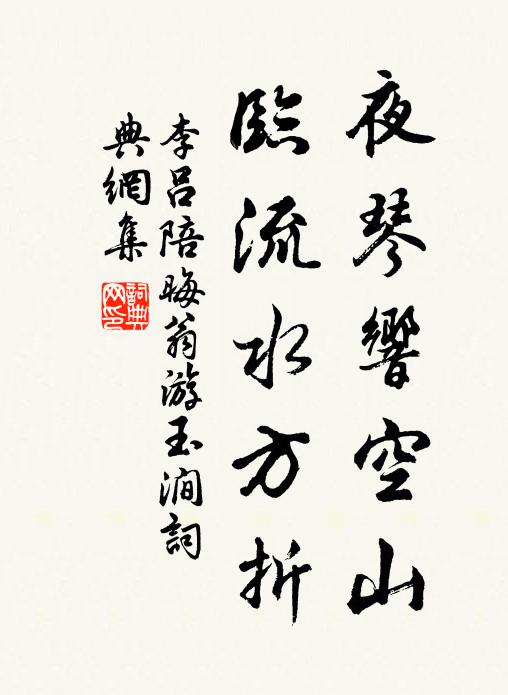 夜琴響空山
臨流水方折
李呂陪晦翁游玉澗詞
典網集
詞典網印